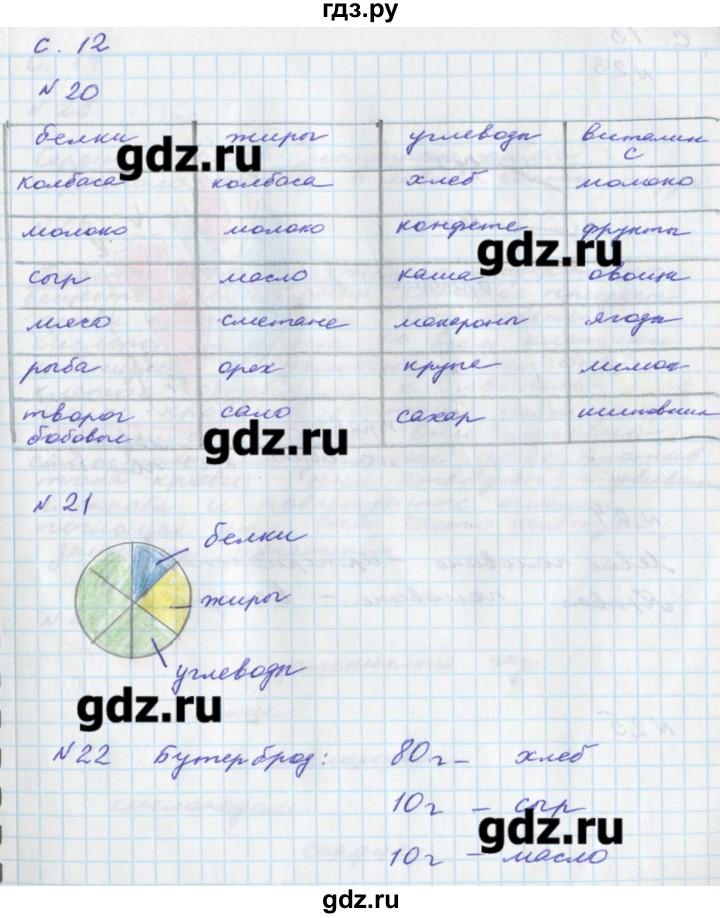 гдз.ру
с. 12
№ 20
белки жиры углеводы витамин С
колбаса колбаса хлеб молоко
молоко молоко конфете фрукты
сыр масло каша овощи
мясо сметане макароны ягоды
рыба орех крупе лимон
творог бобовые сало сахар шиповник
gdz.ru
gdz.ru
gdz.ru
№ 21
белки
жиры
углеводы
gdz.ru
№ 22 Бутерброд: 80 г – хлеб
10 г – сыр
10 г – масло
gdz.ru
gdz.ru